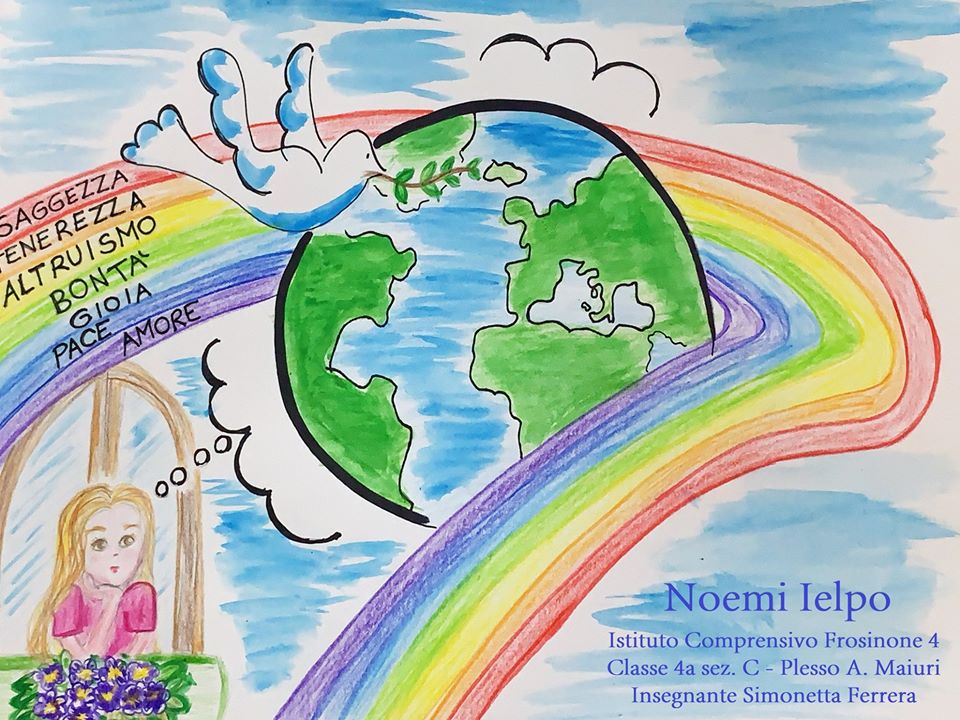 SAGGEZZA
TENEREZZA
ALTRUISMO
BONTA'
GIOIA
PACE
AMORE
Noemi Ielpo
Istituto Comprensivo Frosinone 4
Classe 4a sez. C - Plesso A. Maiuri
Insegnante Simonetta Ferrera